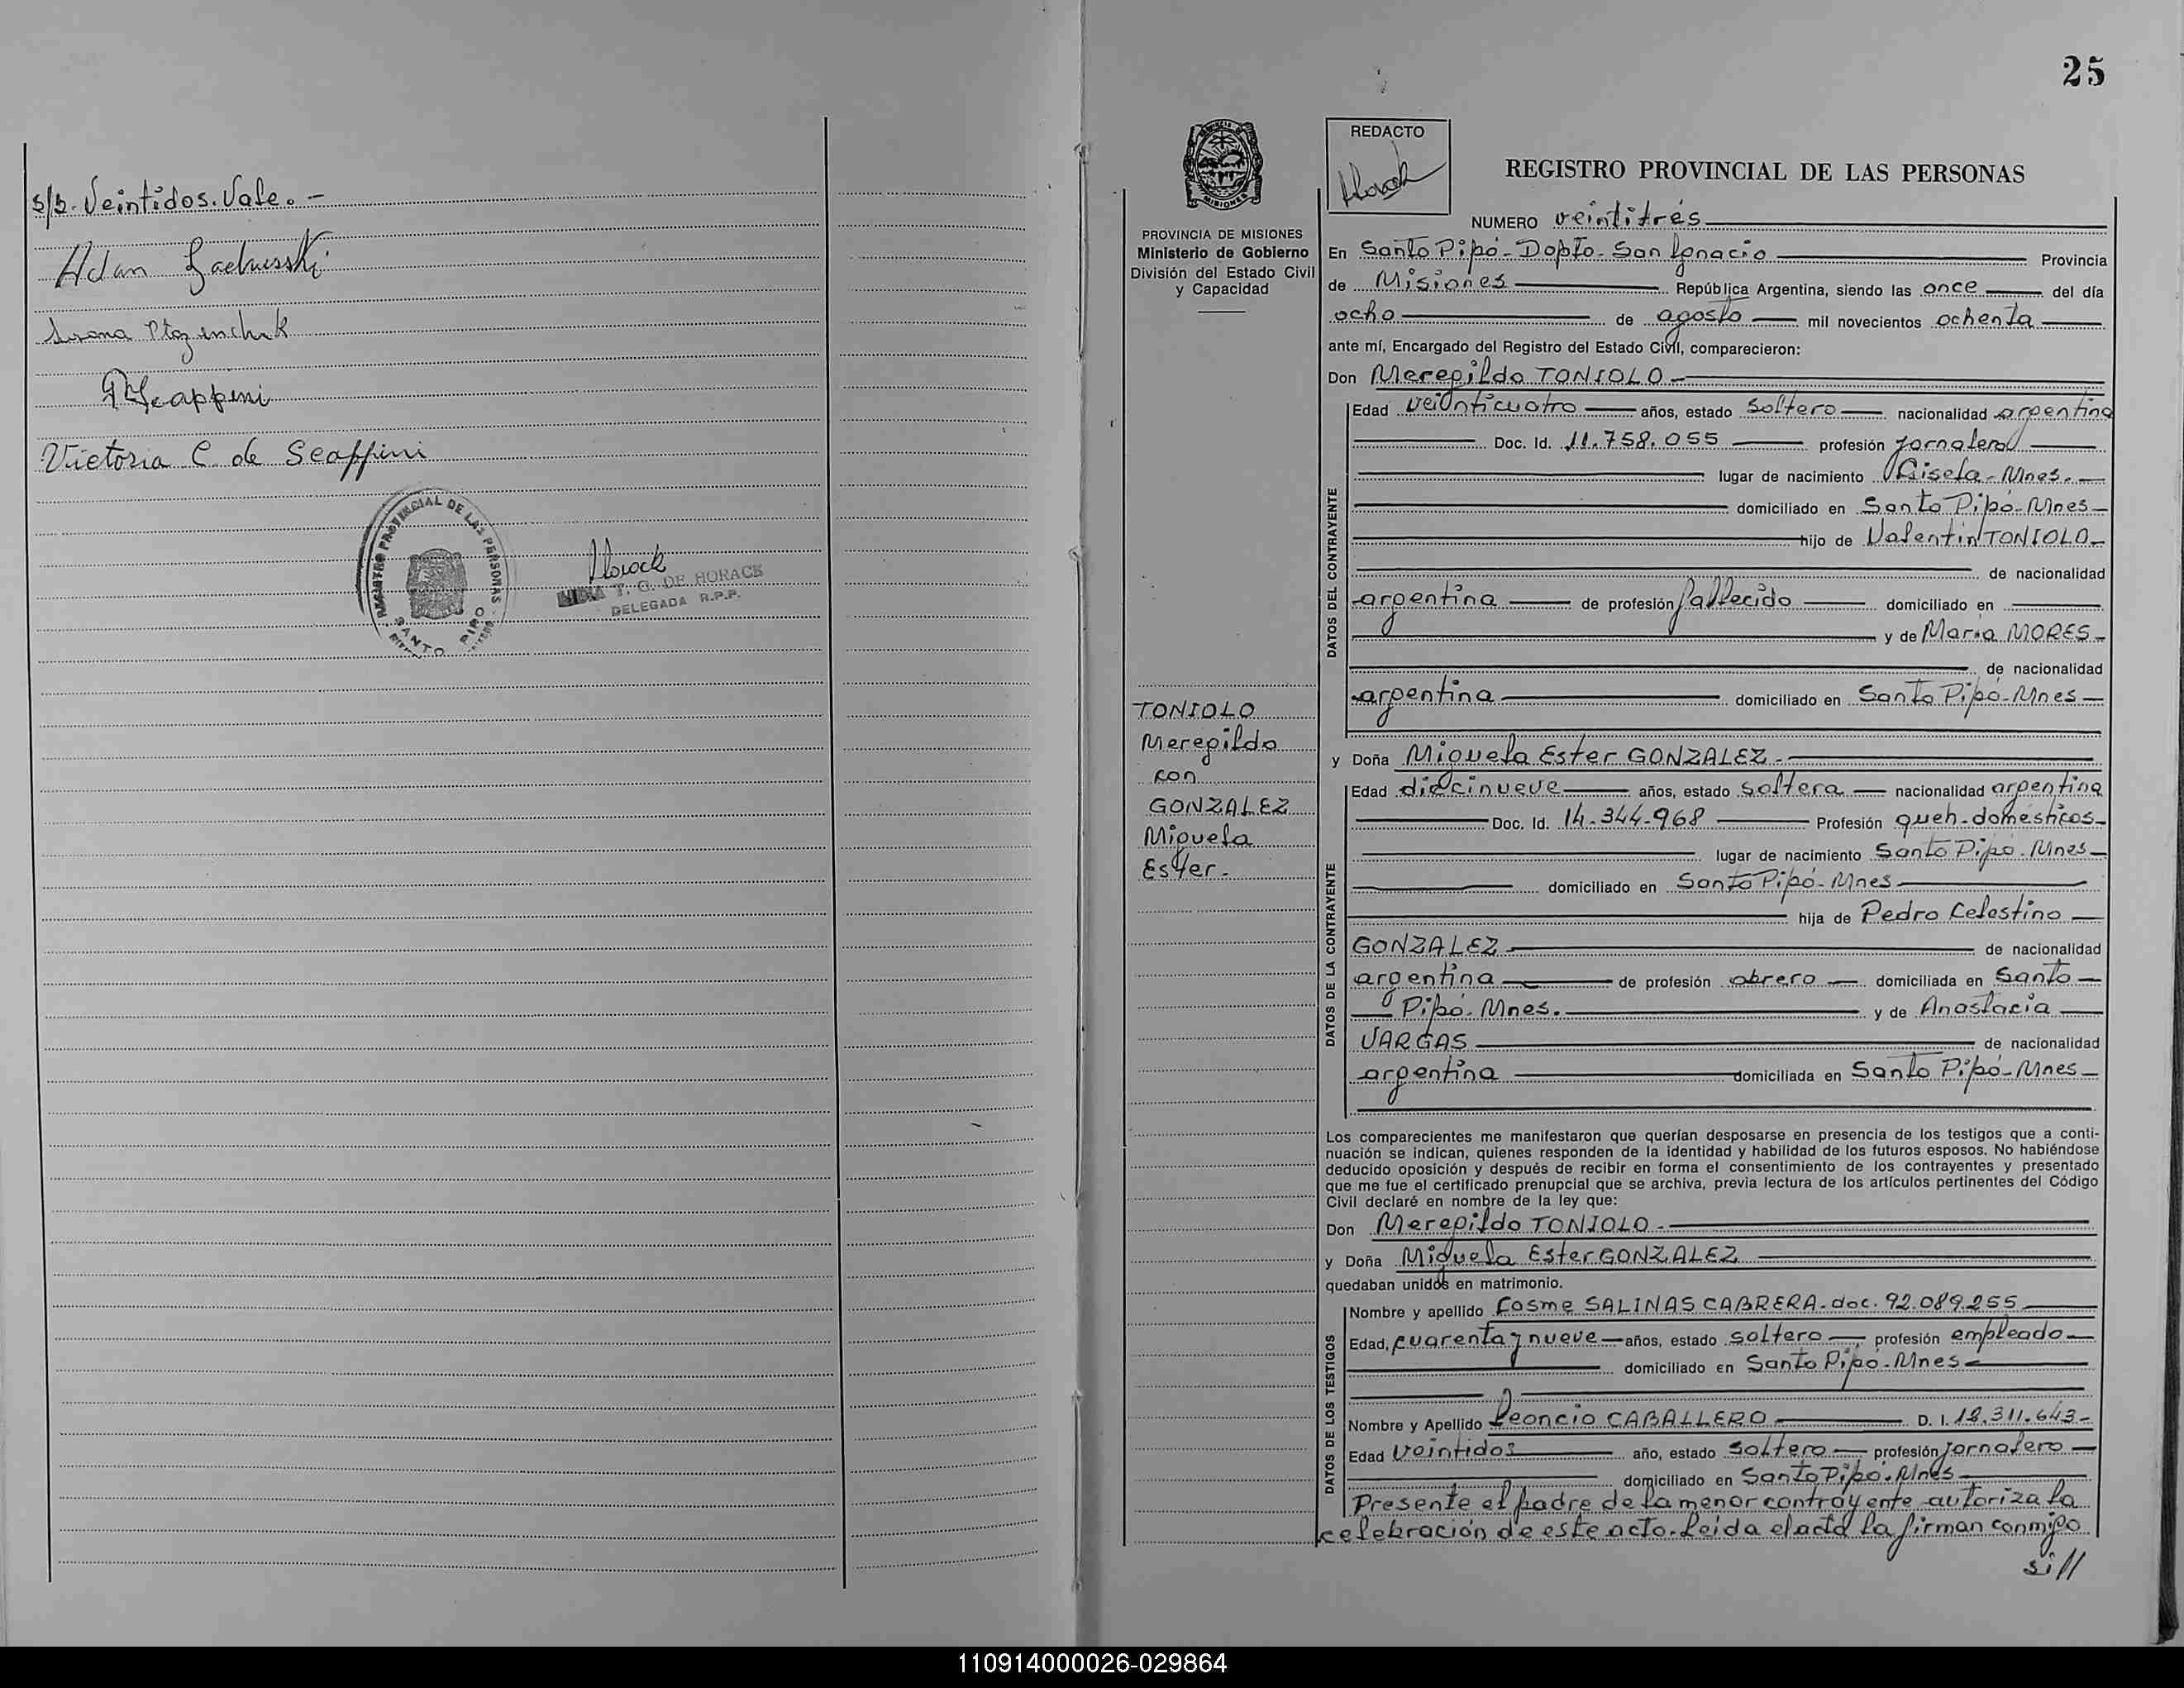 s/b. Veintidos. Vale. -
Adan
Susana
Scappini
Victoria C. de Scappini
REGISTRO PROVINCIAL DE LAS PERSONAS
SANTO PIPO
Horack
T. G. DE HORACK
DELEGADA R.P.P.
25
REDACTO
Horack
REGISTRO PROVINCIAL DE LAS PERSONAS
PROVINCIA DE MISIONES
Ministerio de Gobierno
División del Estado Civil
y Capacidad
NUMERO veintitrés
En Santo Pipó - Dopto - San Ignacio Provincia
de Misiones República Argentina, siendo las once del día
ocho de agosto mil novecientos ochenta
ante mí, Encargado del Registro del Estado Civil, comparecieron:
Don Meregildo TONIOLO -
DATOS DEL CONTRAYENTE
Edad veinticuatro años, estado soltero nacionalidad argentina
Doc. Id. 11.758.055 profesión jornalero
lugar de nacimiento Gisela - Mnes. -
domiciliado en Santo Pipó - Mnes -
hijo de Valentin TONIOLO -
de nacionalidad
argentina de profesión fallecido domiciliado en
y de Maria MORES -
de nacionalidad
argentina domiciliado en Santo Pipó - Mnes -
TONIOLO
Meregildo
con
GONZALEZ
Miguela
Ester -
y Doña Miguela Ester GONZALEZ -
DATOS DE LA CONTRAYENTE
Edad diecinueve años, estado soltera nacionalidad argentina
Doc. Id. 14.344.968 Profesión queh - domésticos -
lugar de nacimiento Santo Pipó - Mnes -
domiciliado en Santo Pipó - Mnes
hija de Pedro Celestino
GONZALEZ de nacionalidad
argentina de profesión obrero domiciliada en Santo
Pipó - Mnes. y de Anastacia
VARGAS de nacionalidad
argentina domiciliada en Santo Pipó - Mnes -
Los comparecientes me manifestaron que querían desposarse en presencia de los testigos que a conti-
nuación se indican, quienes responden de la identidad y habilidad de los futuros esposos. No habiéndose
deducido oposición y después de recibir en forma el consentimiento de los contrayentes y presentado
que me fue el certificado prenupcial que se archiva, previa lectura de los artículos pertinentes del Código
Civil declaré en nombre de la ley que:
Don Meregildo TONIOLO -
y Doña Miguela Ester GONZALEZ
quedaban unidos en matrimonio.
DATOS DE LOS TESTIGOS
Nombre y apellido Cosme SALINAS CABRERA - doc. 92.089.255
Edad, cuarenta y nueve años, estado soltero profesión empleado
domiciliado en Santo Pipó - Mnes
Nombre y Apellido Leoncio CABALLERO D. I. 18.311.643 -
Edad veintidos año, estado soltero profesión jornalero
domiciliado en Santo Pipó - Mnes
Presente el padre de la menor contrayente autoriza la
celebración de este acto. Leida el acta la firman conmigo
si//
110914000026-029864